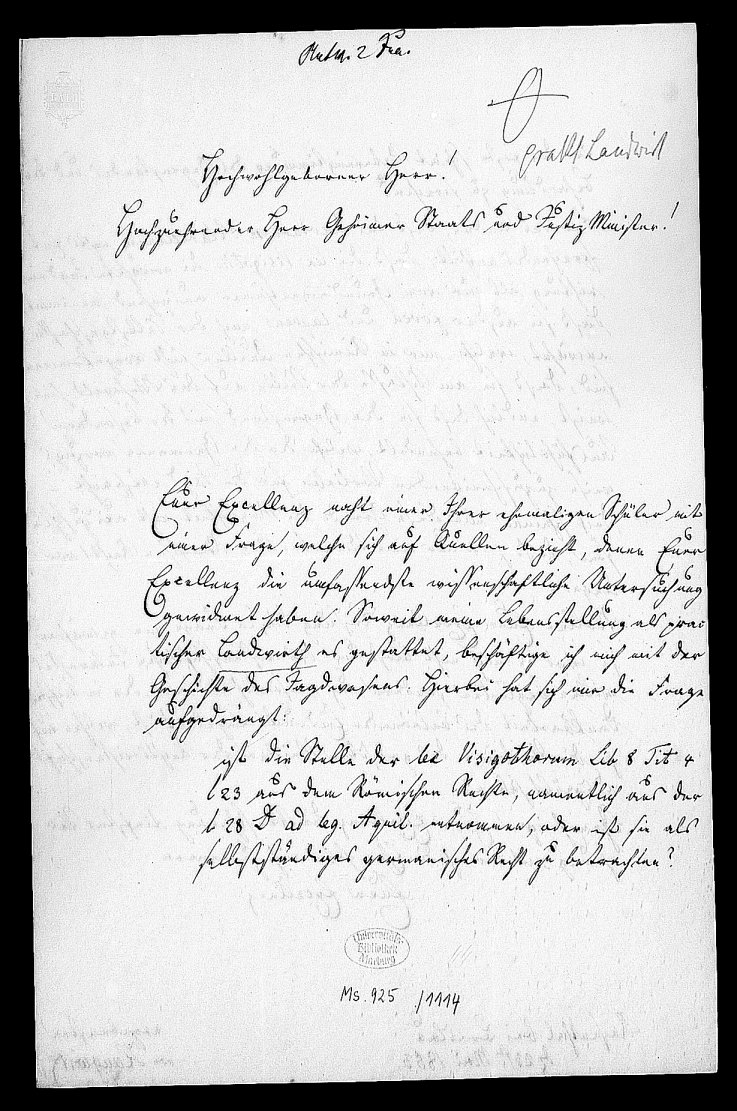 Antw. 2 Feb.
prakt Landwirt
Hochwohlgeborner Herr!
Hochzuehrender Herr Geheimer Staats und Justiz Minister!
Euer Excellenz naht einer Ihrer ehemaligen Schüler mit
einer Frage, welche sich auf Quellen bezieht, denen Euer
Excellenz die umfassendste wissenschaftliche Untersuchung
gewidmet haben. Soweit meine Lebensstellung als prac
tischer Landwirth es gestattet, beschäftige ich mich mit der
Geschichte des Jagdwesens. Hierbei hat sich mir die Frage
aufgedrängt:
ist die Stelle der lex Visigothorum Lib 8 Tit 4
l 23 aus dem Römischen Rechte, namentlich aus der
l 28 D ad leg. Aquil. entnommen, oder ist sie als
selbstständiges germanisches Recht zu betrachten?
Universitäts-
Bibliothek
Marburg
Ms. 925 /1114